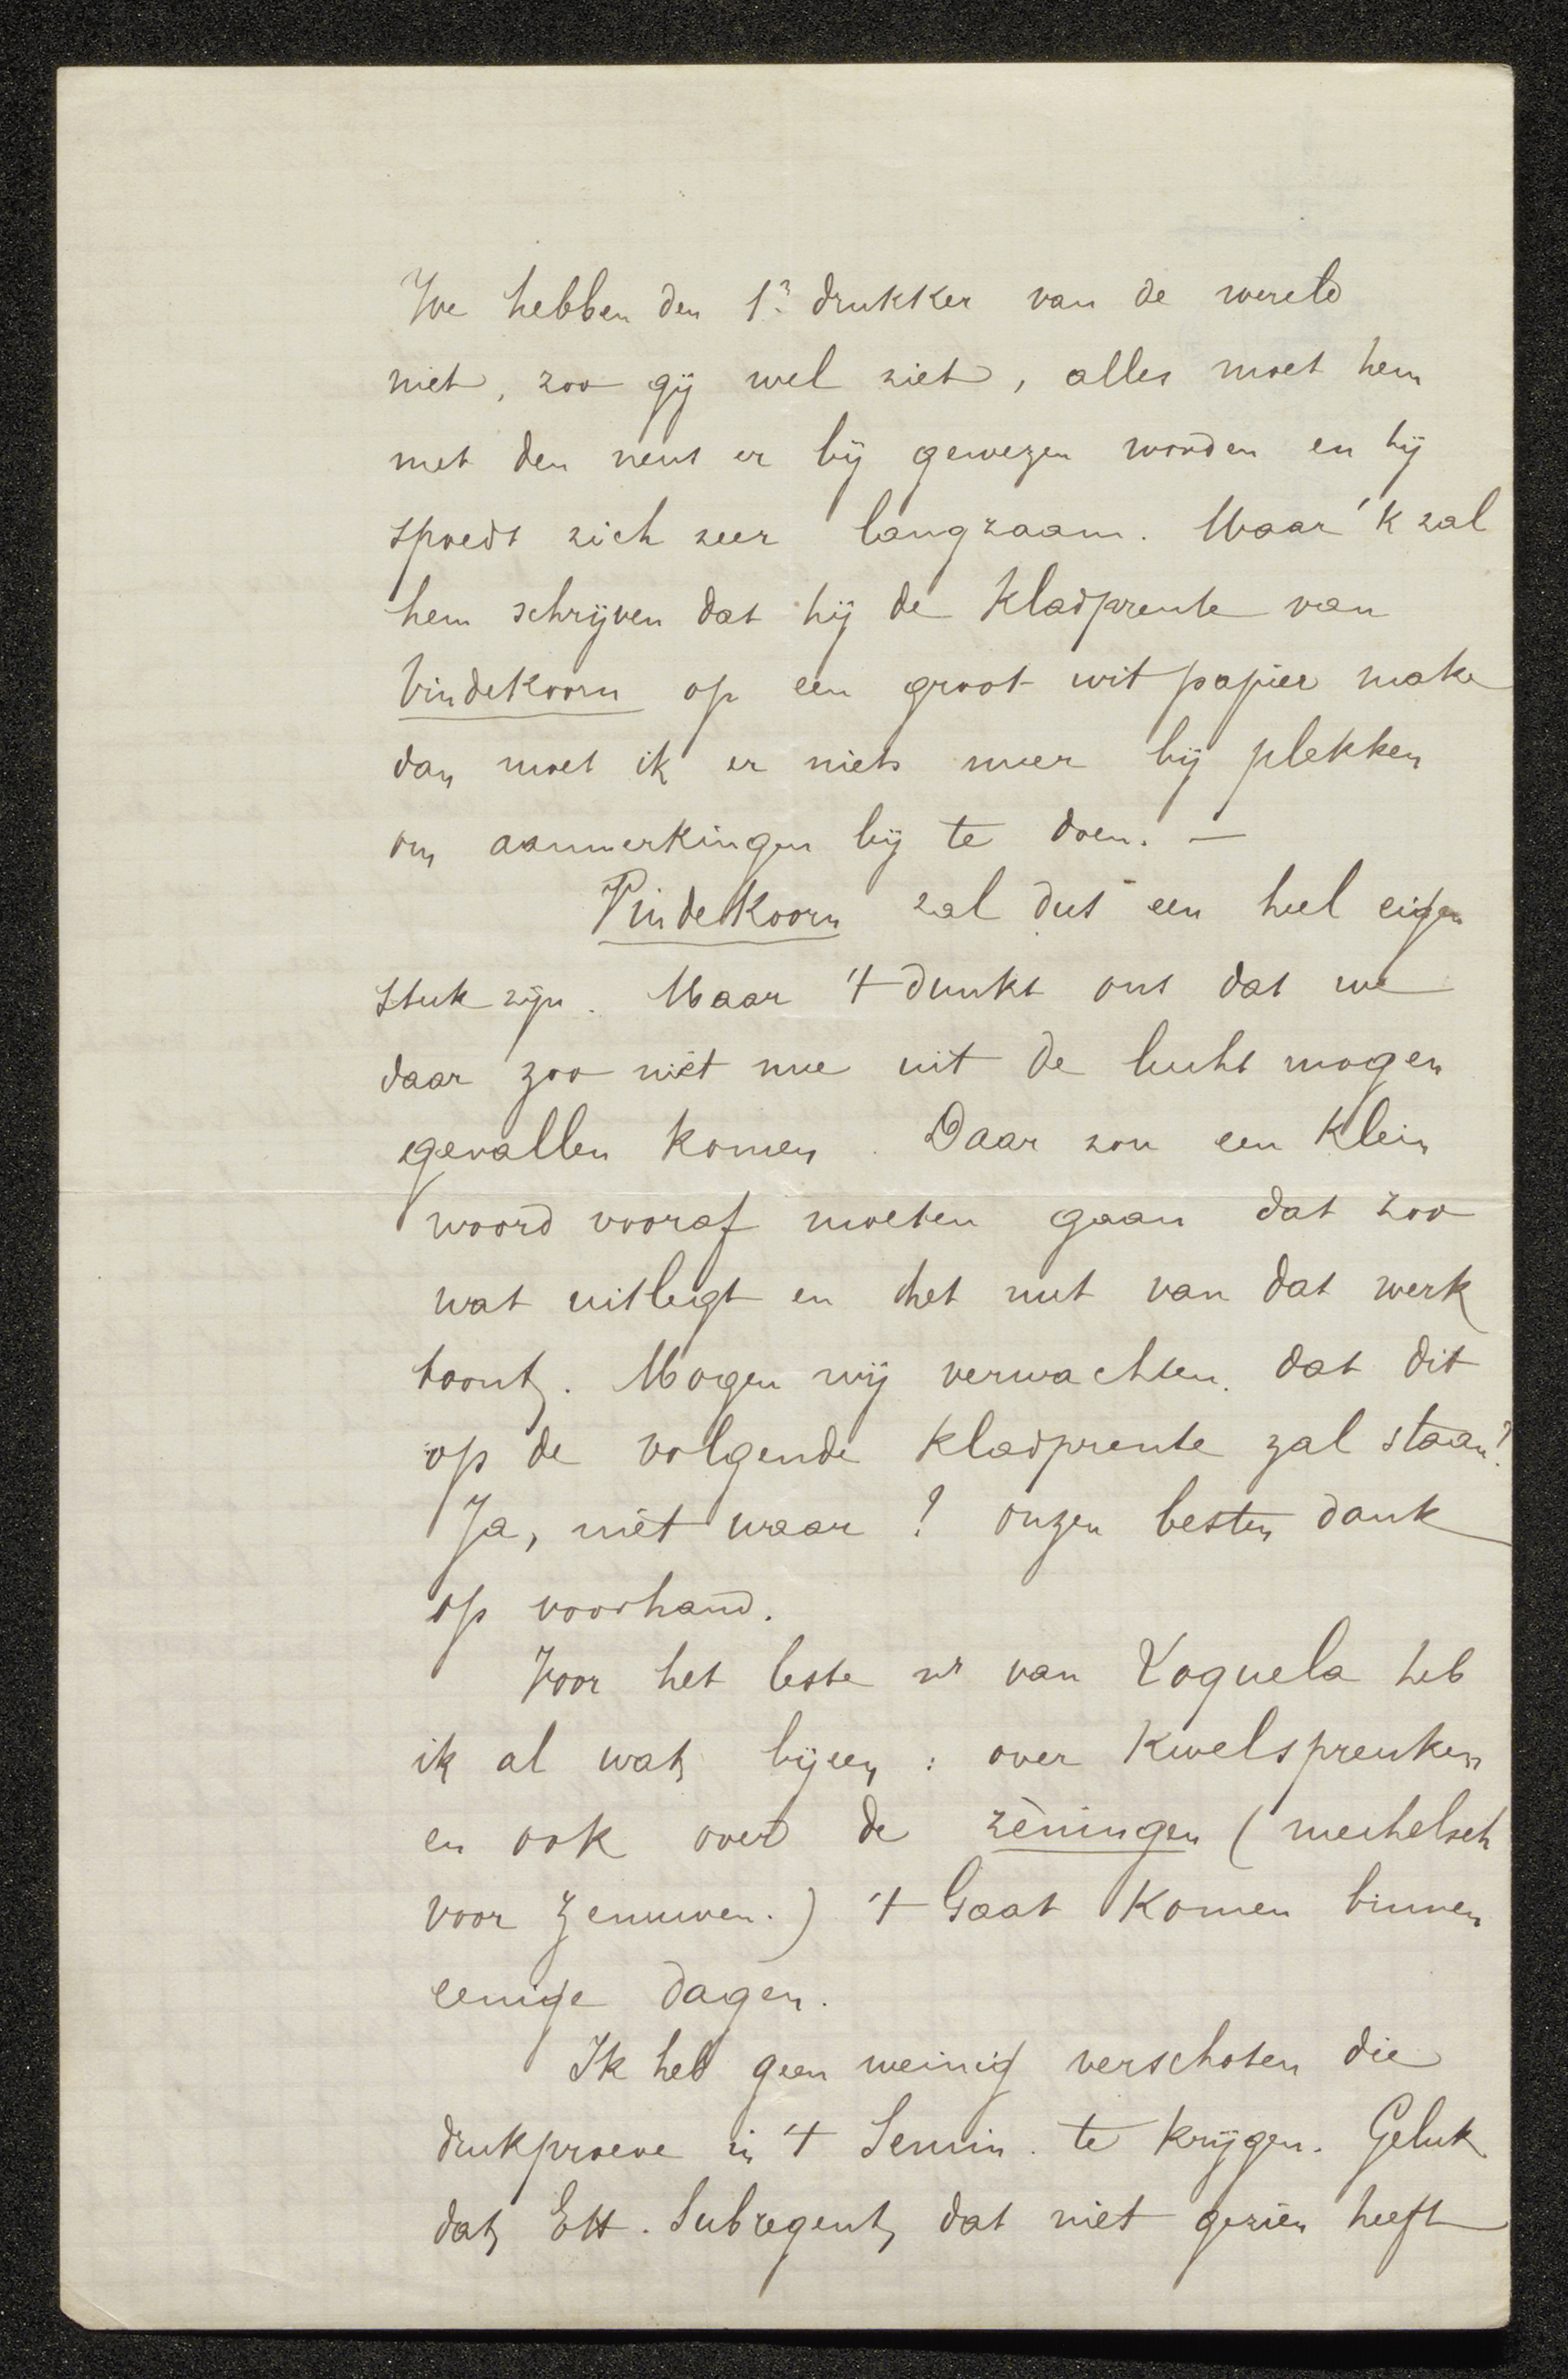 We hebben den 1n drukker van de wereld
niet, zoo gij wel ziet, alles moet hem
met den neus er bij gewezen worden en hij
spoedt zich zeer langzaam. Maar 'k zal
hem schrijven dat hij de Kladprente van
Vindekoorn op een groot wit papier make
dan moet ik er niets meer bij plekken
om aanmerkingen bij te doen. —
Vindekoorn zal dus een heel eigen
stuk zijn. Maar 't dunkt ons dat we
daar zoo niet mee uit de lucht mogen
gevallen komen. Daar zou een klein
woord vooraf moeten gaan dat zoo
wat uitlegt en het nut van dat werk
toont. Mogen wij verwachten dat dit
op de volgende kladprente zal staan?
Ja, niet waar? onzen besten dank
op voorhand.
Voor het leste nr van Loquela heb
ik al wat bijeen : over Kwelspreuken
en ook over de zèningen (mechelsch
voor zenuwen.) 't Gaat komen binnen
eenige dagen.
Ik heb geen weinig verschoten die
drukproeve in 't Semin. te krijgen. Geluk
dat EH. Subregent dat niet gezien heeft